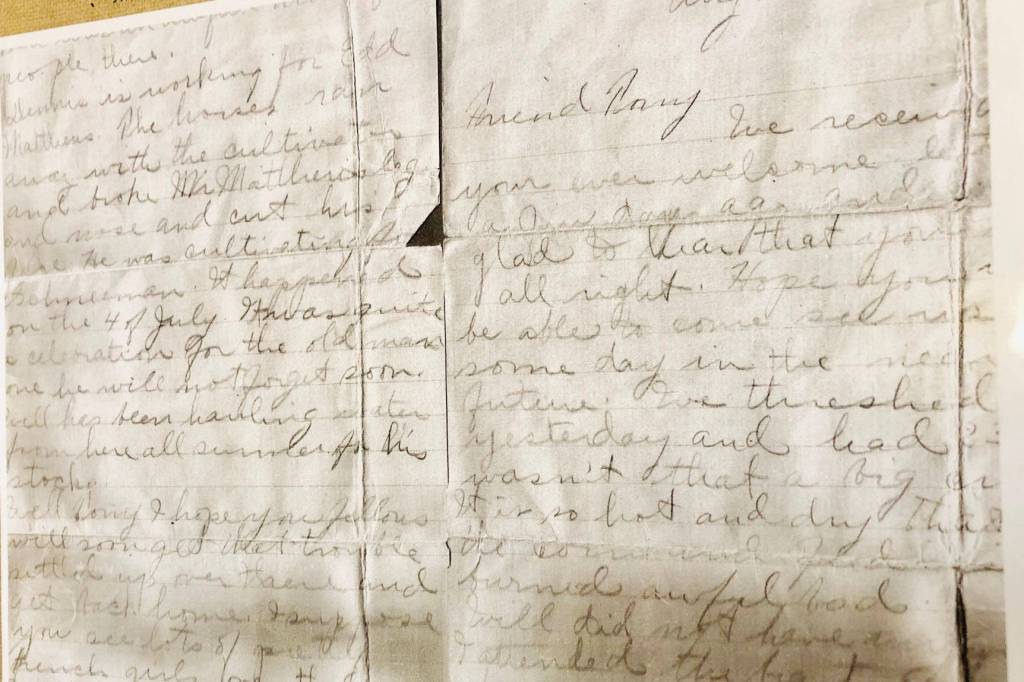 people there.
Dennis is working for Old
Matthews. The horses ran
away with the cultivator
and broke Mr Matthews leg
and nose and cut his
He was cultivating for
It happened
on the 4 of July. It was quite
a celebration for the old man
one he will not forget soon.
Will has been hauling water
from here all summer for his
stock.
Well Tony I hope you fellows
will soon get that trouble
settled up over there and
get back home. I suppose
you see lots of pretty
French girls
Friend Tony
We receiv
your ever welcome let
a few days ago and
glad to hear that you
all right. Hope you
be able to come see us
some day in the near
future. We threshed
yesterday and had
wasn't that a big
It is so hot and dry tha
the corn and
burned awful bad
Will did not have
I attended the big